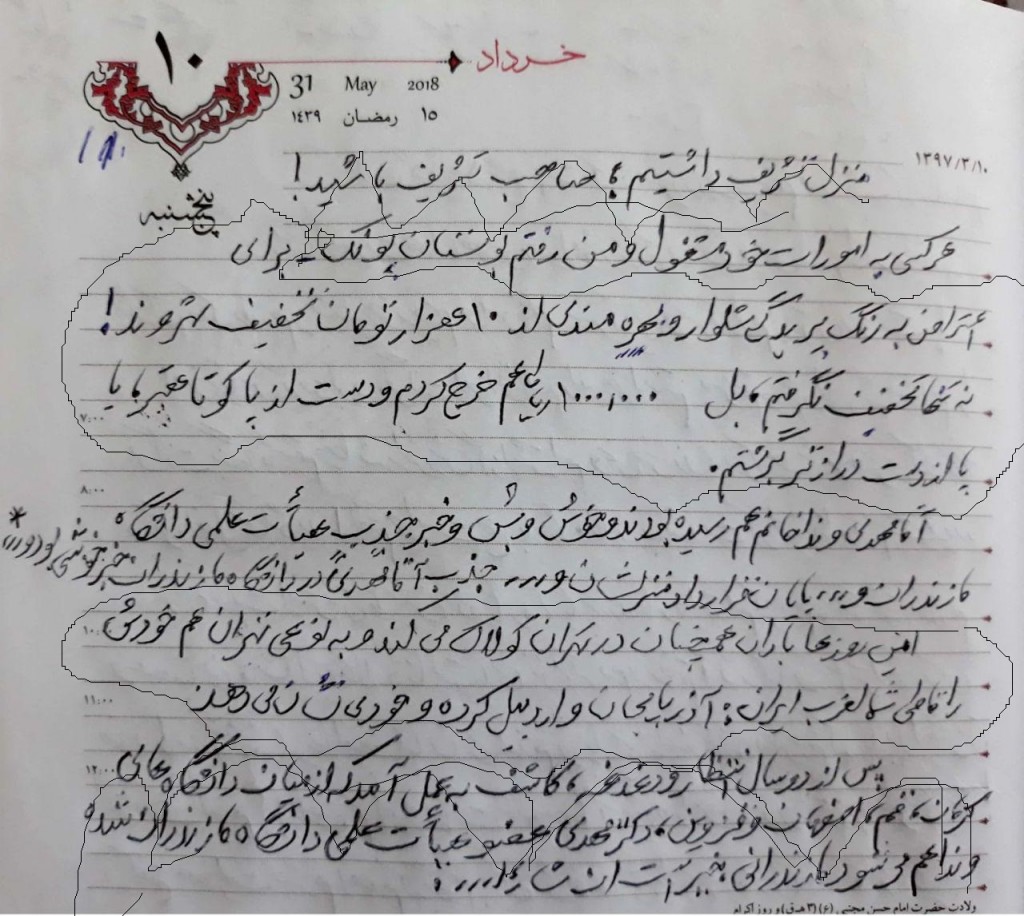 خرداد
۱۰
31 May 2018
۱۵ رمضان ۱۴۳۹
پنجشنبه
۱۳۹۷/۳/۱۰
منزل تشریف داشتیم؛ صاحب تشریف باشید!
هرکسی به امورات خود مشغول و من رفتم بوستان پونک ـ برای
اعتراض به رنگ پریدگی شلوار و بهره مندی از تخفیف
نه تنها تخفیف نگرفتم، بل ۱۰۰۰،۰۰۰ ریال هم خرج کردم و دست از پا کوتاهتر، یا
پا از دست درازتر برگشتم.
۷:۰۰
۸:۰۰
آقامهدی و نداخانم هم رسیده بودند و خوش و بش و خبر جذب هیأت علمی دانشگاه
مازندران و،،، پایان قرارداد منزلشان و،،، جذب آقامهدی در دانشگاه مازندران خبر خوشی بود و،،، *
این روزها باران همچنان در تهران کولاک می کند و به نوعی تهران هم خودش
۱۰:۰۰
را قاطی شمالغرب ایران؛ آذربایجان و اردبیل کرده و خودی نشان می دهد
۱۱:۰۰
پس از دو سال انتظار و دغدغه، کاشف به عمل آمد که از میان دانشگاه هایی
۱۲:۰۰
کرمان، قم، اصفهان و قزوین، دکترمهدی عضو هیأت علمی دانشگاه مازندران شده
و ندا هم می شود مازندرانی
ولادت حضرت امام حسن مجتبی (ع) (۳ هـ.ق) و روز اکرام